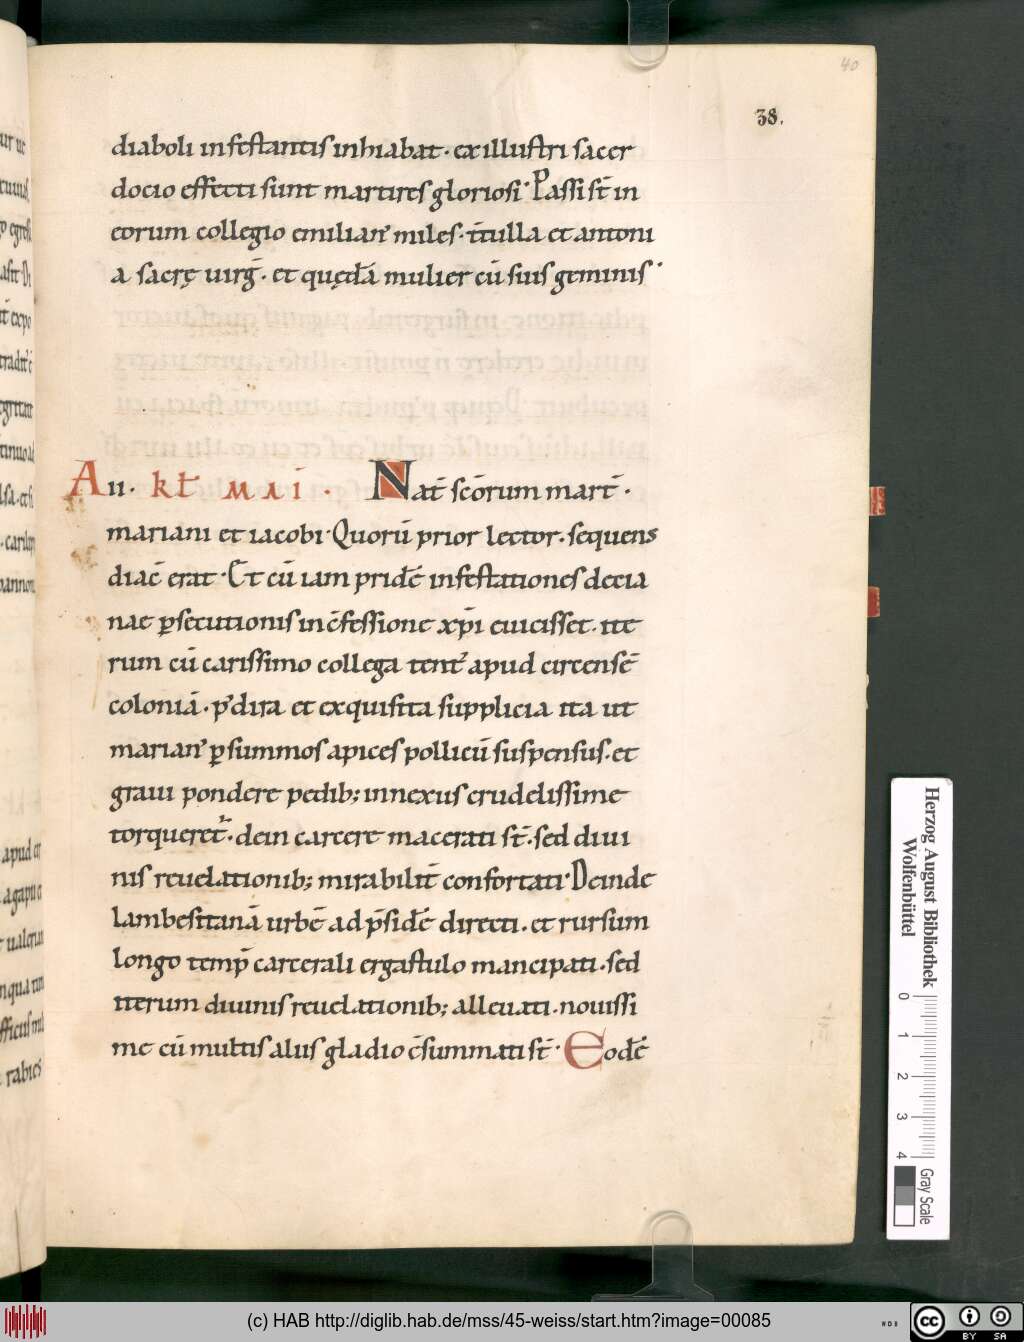 40
38.
diaboli infestantis inhiabat · ex illustri sacer
docio effecti sunt martires gloriosi · Passi st̄ in
eorum collegio emilian᾿ miles · t̄tulla et antoni
a sacrę uirḡ · et quędā mulier cū suis geminis ·
A II · kł mai · Nat̄ scōrum mart̄ ·
mariani et iacobi · Quorū prior lector · sequens
diac̄ erat · Et cū iam pridē infestationes decia
nae ꝑsecutionis in c̄fessione xp̄i euicisset · ite
rum cū carissimo collega tent᾿ apud circensē
coloniā · p᾿ dira et exquisita supplicia ita ut
marian᾿ ꝑ summos apices pollicū suspensus · et
graui pondere pedib; innexus crudelissime
torqueret᾿ · dein carcere macerati st̄ · sed diui
nis reuelationib; mirabilit̄ confortati · Deinde
lambesitanā urbē ad p̄sidē directi · et rursum
longo temp̄ carcerali ergastulo mancipati · sed
iterum diuinis reuelationib; alleuati · nouissi
me cū multis aliis gladio c̄summati st̄ · Eodē
Herzog August Bibliothek
Wolfenbüttel
0 1 2 3 4
Gray Scale
(c) HAB http://diglib.hab.de/mss/45-weiss/start.htm?image=00085
WDB
cc BY SA